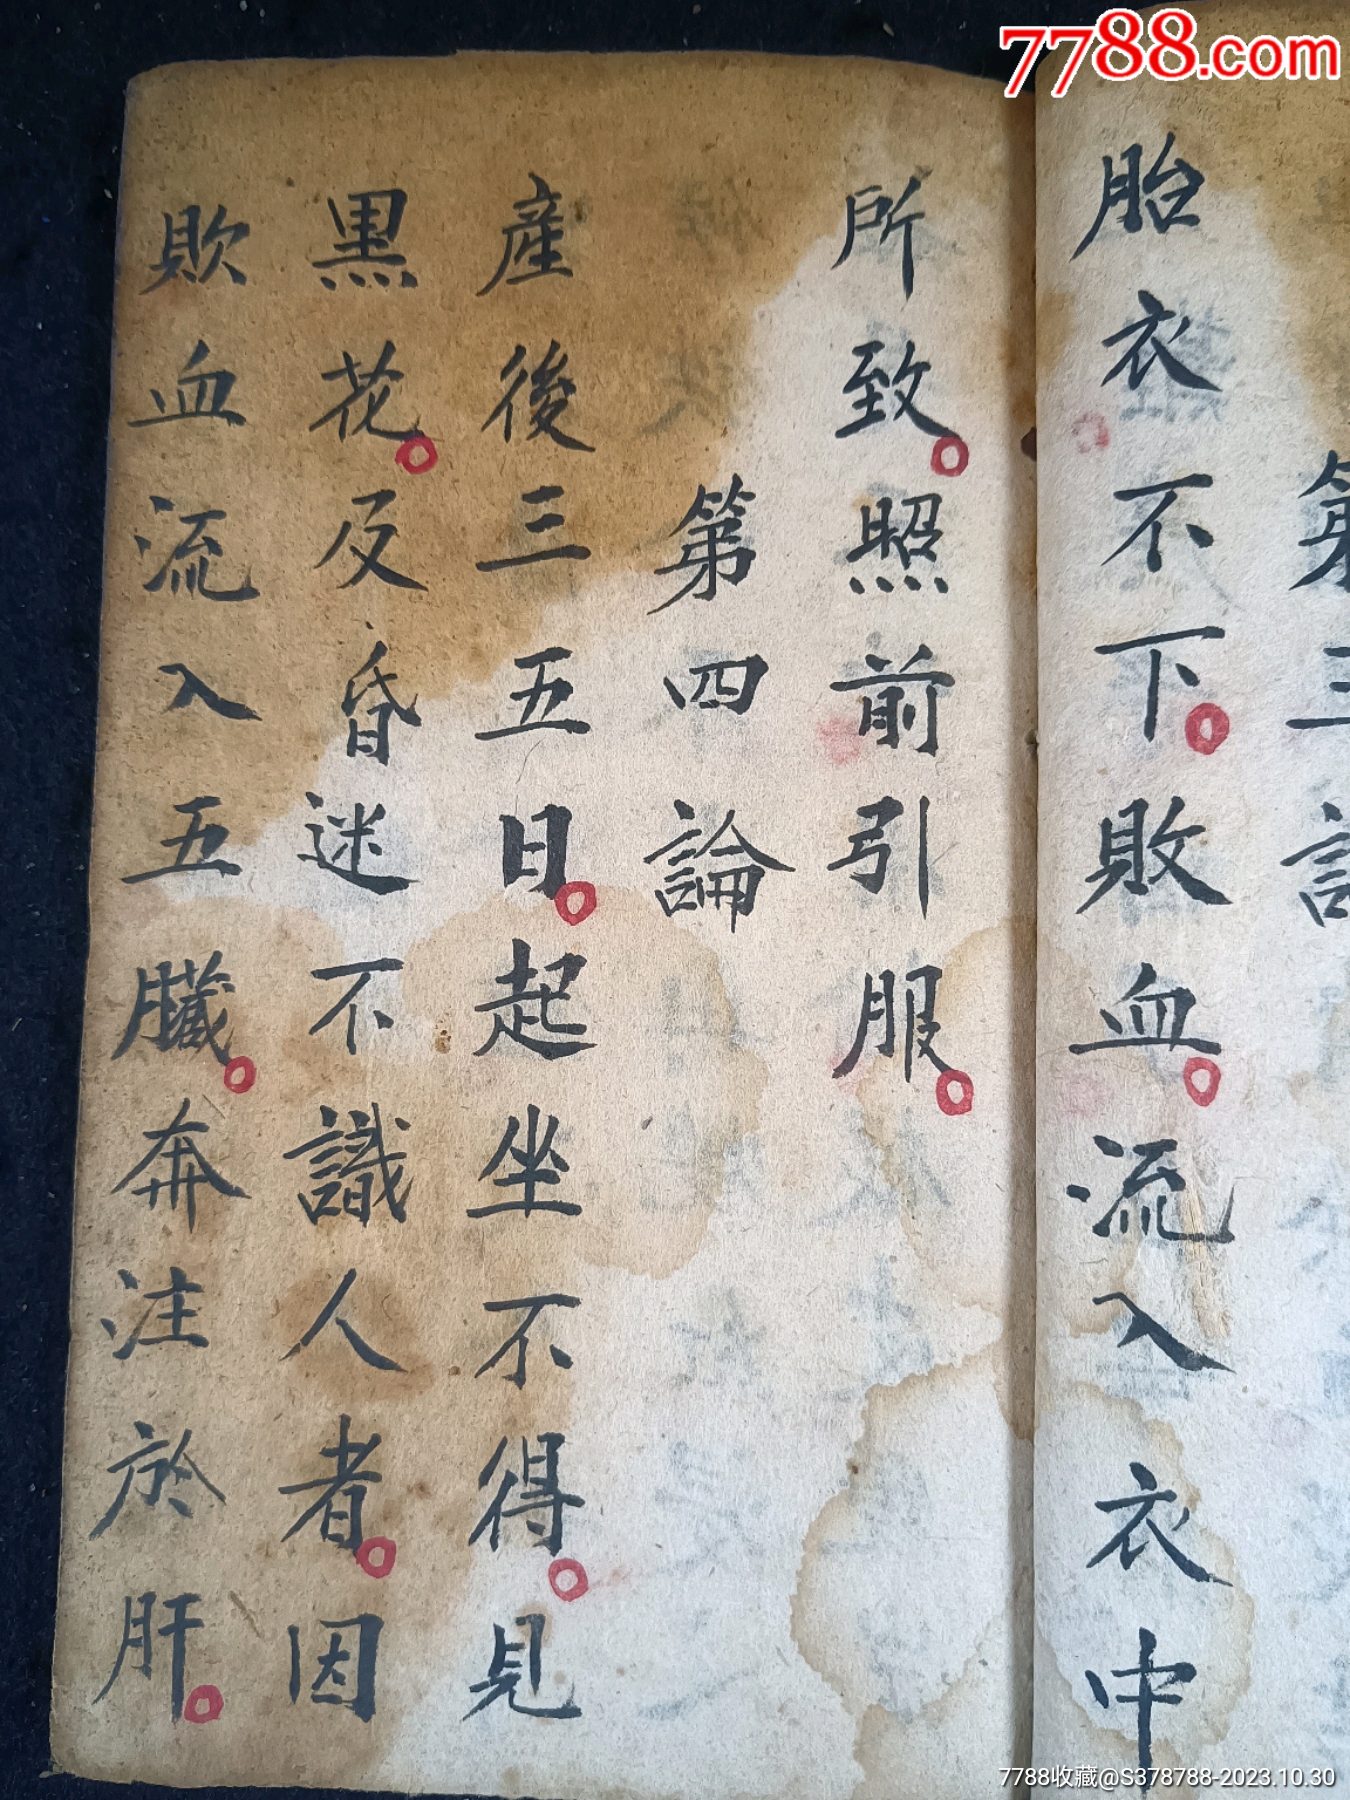 7788.com
第三論
胎衣不下。敗血。流入衣中
所致。照前引服。
第四論
產後三五日。起坐不得。見
黑花。及昏迷不識人者。因
欺血流入五臟。奔注於肝。
7788收藏@S378788-2023.10.30